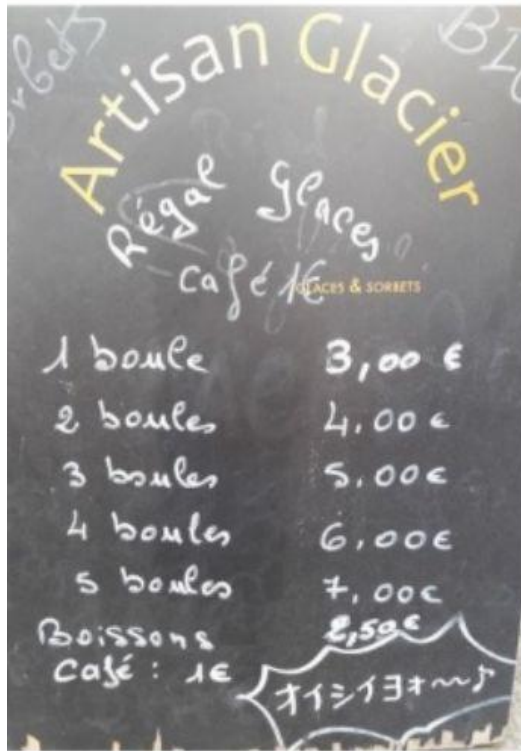 Artisan Glacier
Régal Glaces
Café 1€
GLACES & SORBETS
1 boule 3,00 €
2 boules 4,00 €
3 boules 5,00 €
4 boules 6,00 €
5 boules 7,00 €
Boissons 2,50 €
Café : 1€
オイシイヨオ〜〜♪